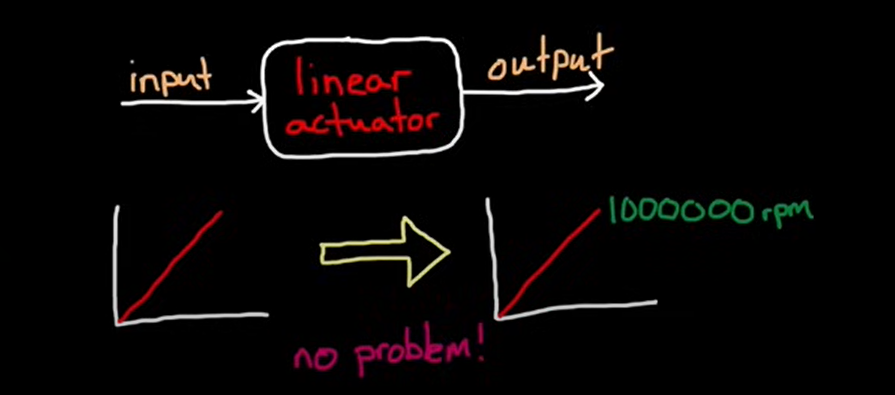 input
linear
actuator
output
1000000 rpm
no problem!